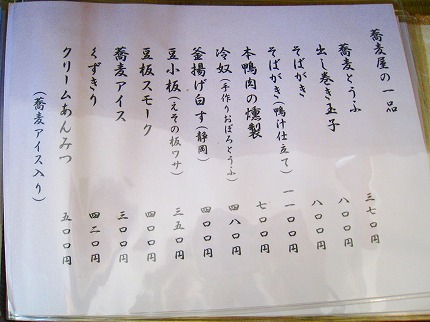 蕎麦屋の一品
蕎麦とうふ 三七〇円
出し巻き玉子 八〇〇円
そばがき 八〇〇円
そばがき(鴨汁仕立て) 一一〇〇円
本鴨肉の燻製 七〇〇円
冷奴(手作りおぼろとうふ) 四八〇円
釜揚げ白す(静岡) 四〇〇円
豆小板(えその板ワサ) 三五〇円
豆板スモーク 四〇〇円
蕎麦アイス 三〇〇円
くずきり 四二〇円
クリームあんみつ 五〇〇円
(蕎麦アイス入り)